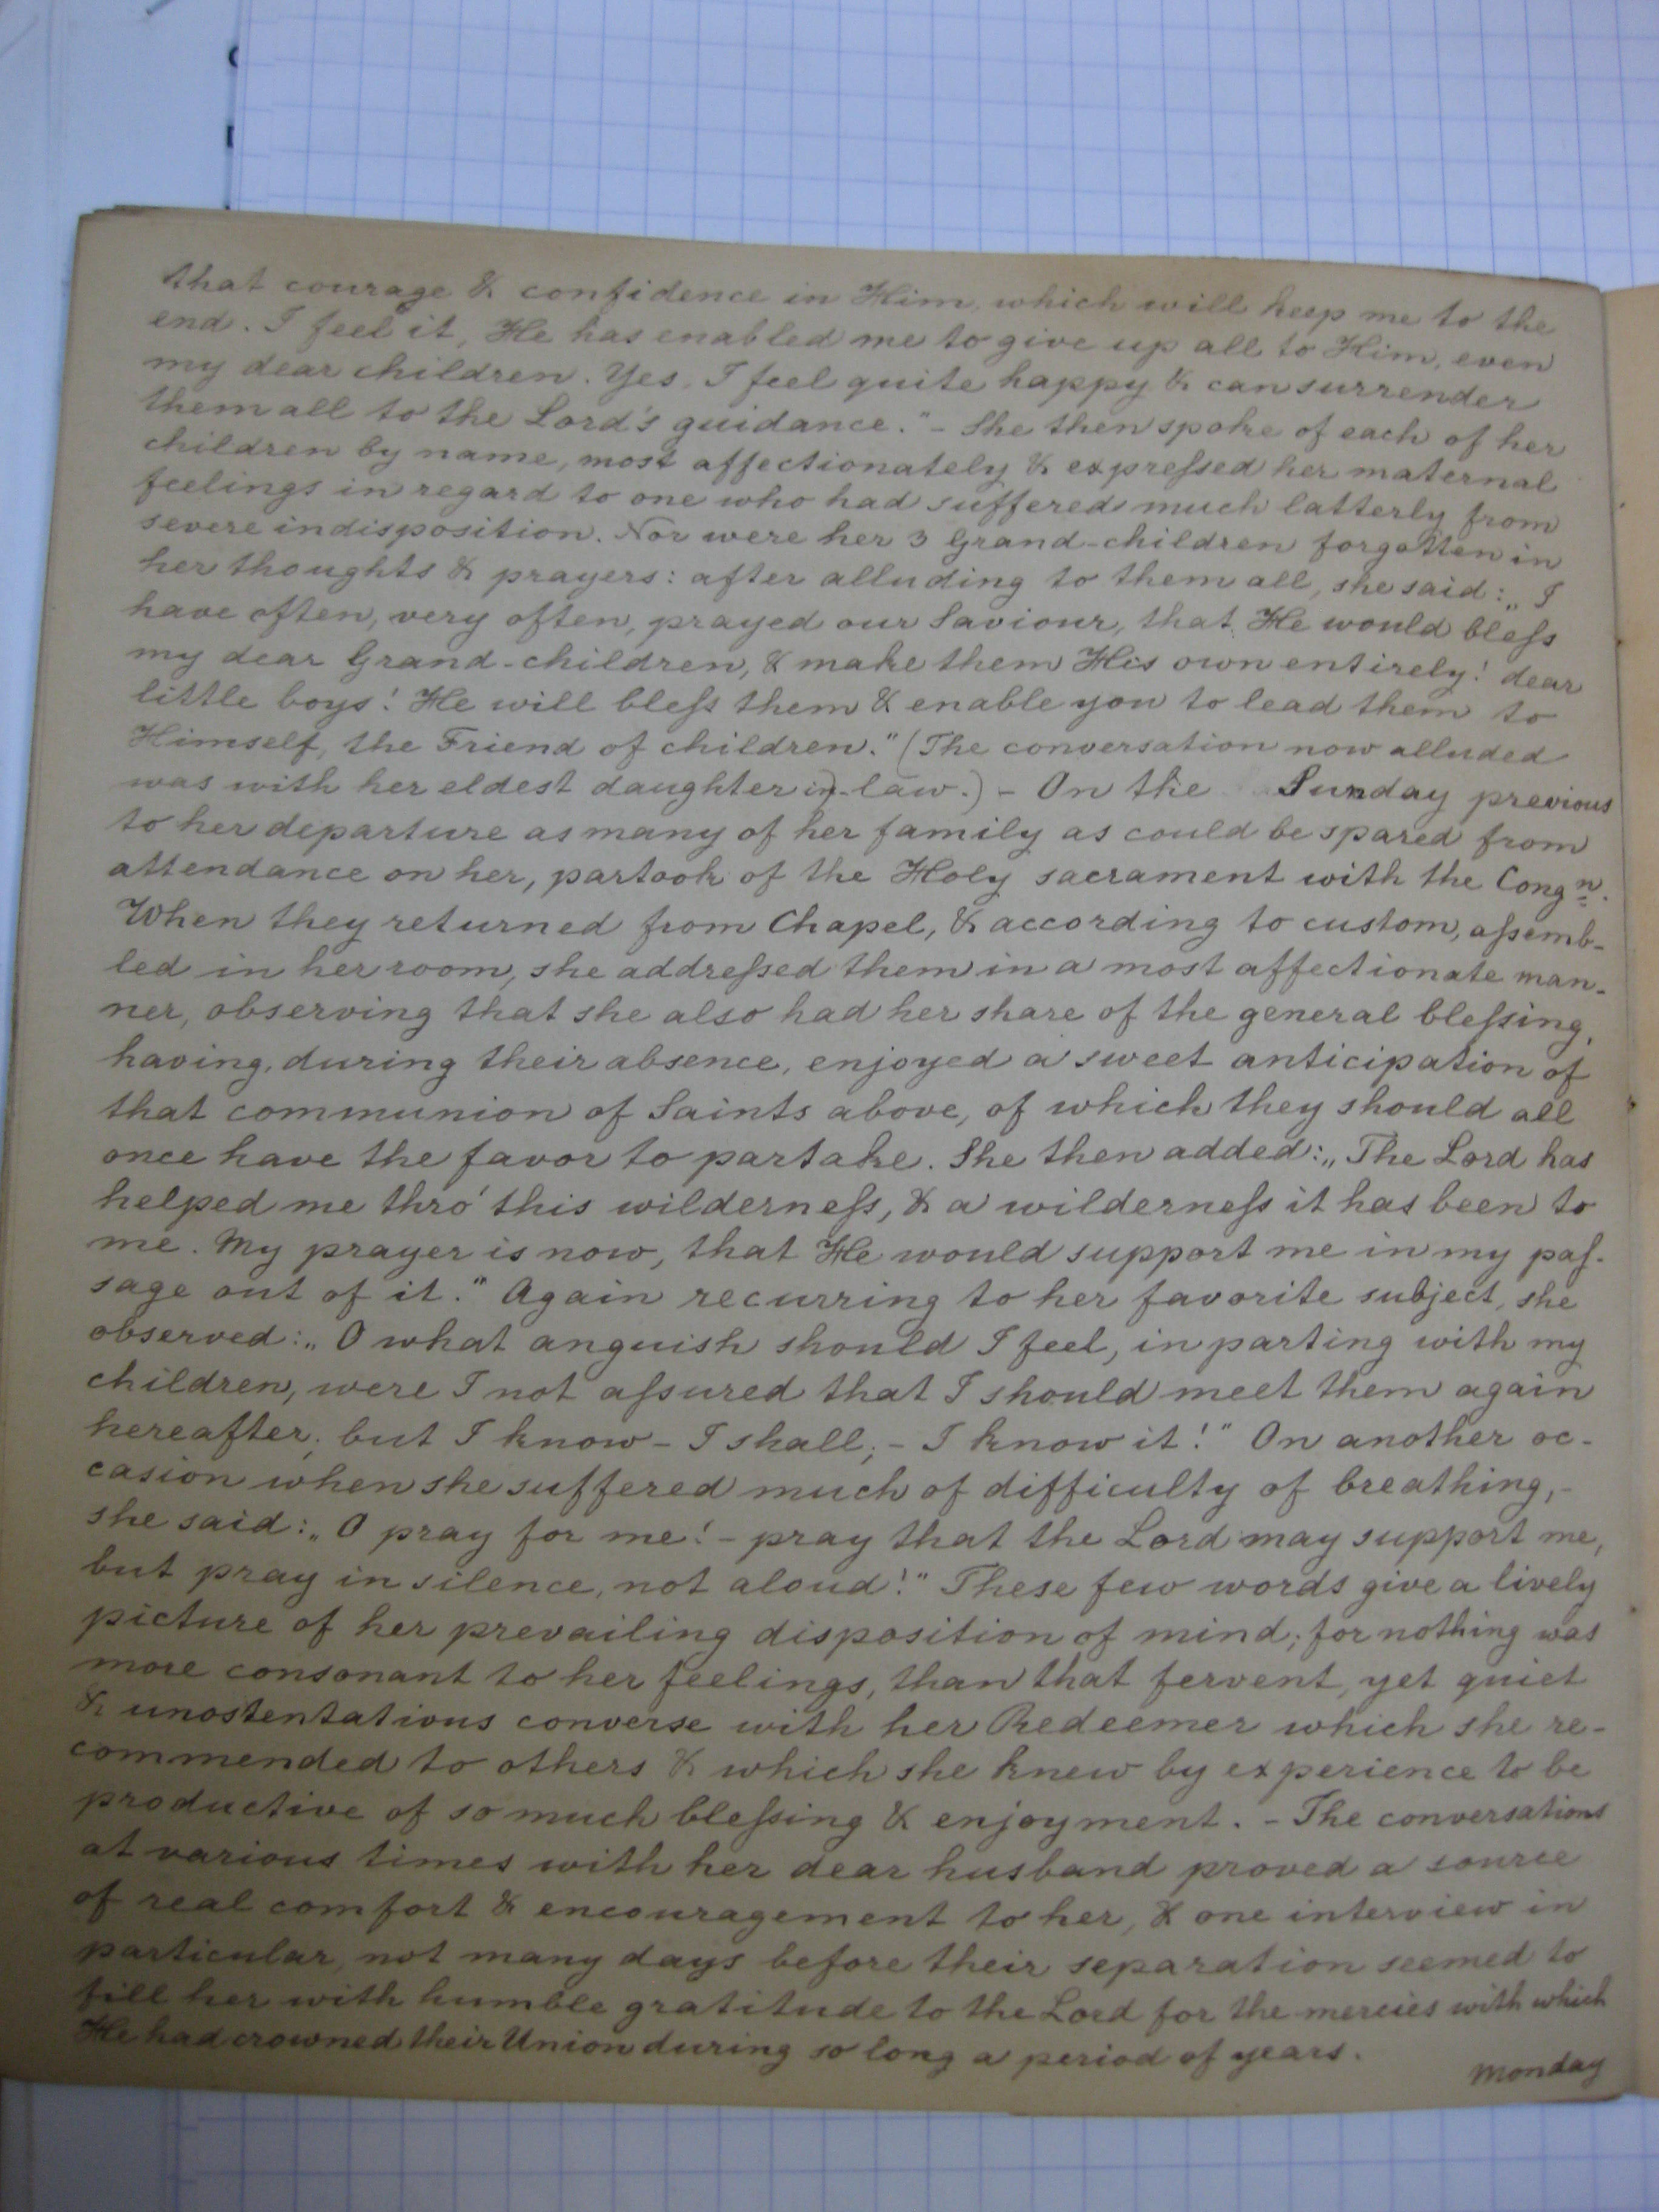 that courage & confidence in Him, which will keep me to the
end. I feel it, He has enabled me to give up all to Him, even
my dear children. Yes, I feel quite happy & can surrender
them all to the Lord's guidance." - She then spoke of each of her
children by name, most affectionately & expreſsed her maternal
feelings in regard to one who had suffered much latterly from
severe indisposition. Nor were her 3 Grand-children forgotten in
her thoughts & prayers: after alluding to them all, she said: „I
have often, very often, prayed our Saviour, that He would bleſs
my dear Grand-children, & make them His own entirely! dear
little boys! He will bleſs them & enable you to lead them to
Himself, the Friend of children." (The conversation now alluded
was with her eldest daughter in-law.) - On the Sunday previous
to her departure as many of her family as could be spared from
attendance on her, partook of the Holy sacrament with the Congn.
When they returned from Chapel, & according to custom, aſsemb-
led in her room, she addreſsed them in a most affectionate man-
ner, observing that she also had her share of the general bleſsing,
having, during their absence, enjoyed a sweet anticipation of
that communion of Saints above, of which they should all
once have the favor to partake. She then added: „The Lord has
helped me thro' this wilderneſs, & a wilderneſs it has been to
me. My prayer is now, that He would support me in my paſ-
sage out of it." Again recurring to her favorite subject, she
observed: „O what anguish should I feel, in parting with my
children, were I not aſsured that I should meet them again
hereafter; but I know - I shall; - I know it!" On another oc-
casion when she suffered much of difficulty of breathing, -
she said: „O pray for me! - pray that the Lord may support me,
but pray in silence, not aloud!" These few words give a lively
picture of her prevailing disposition of mind; for nothing was
more consonant to her feelings, than that fervent, yet quiet
& unostentatious converse with her Redeemer which she re-
commended to others & which she knew by experience to be
productive of so much bleſsing & enjoyment. - The conversations
at various times with her dear husband proved a source
of real comfort & encouragement to her, & one interview in
particular, not many days before their separation seemed to
fill her with humble gratitude to the Lord for the mercies with which
He had crowned their Union during so long a period of years.
Monday